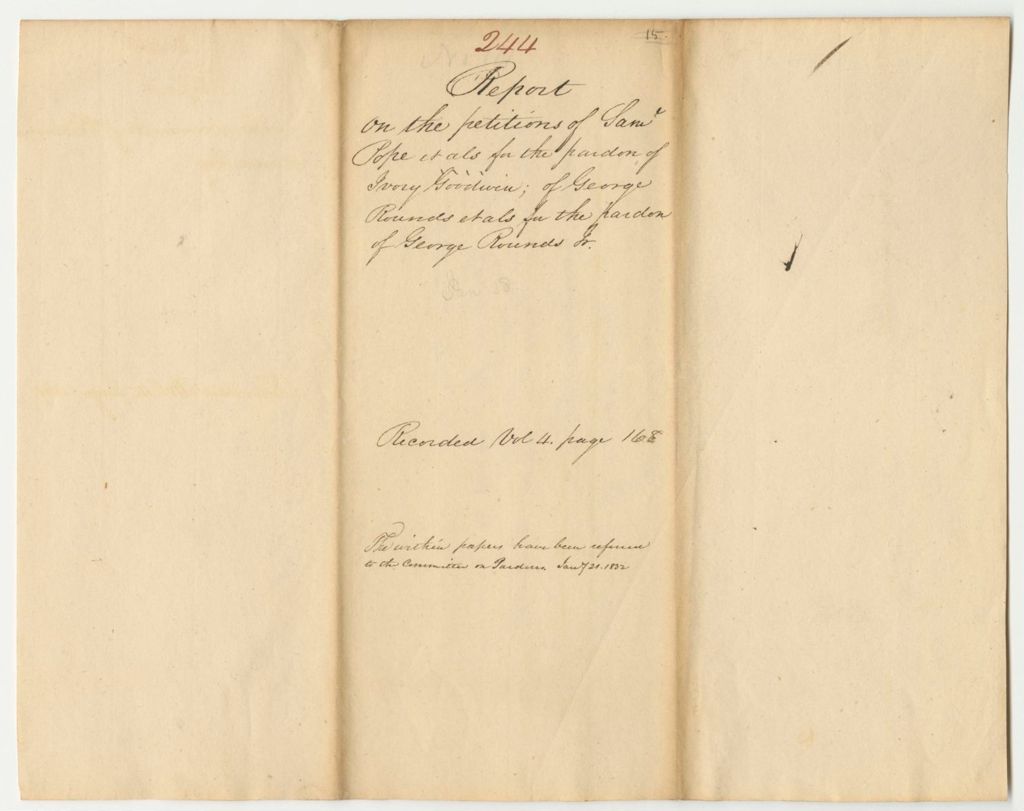 244
15.
Report
on the petitions of Saml
Pope et als for the pardon of
Ivory Goodwin; of George
Rounds et als for the pardon
of George Rounds Jr.
Recorded Vol 4. page 168
The within papers have been referred
to the Committee on Pardons. Jany 21. 1832